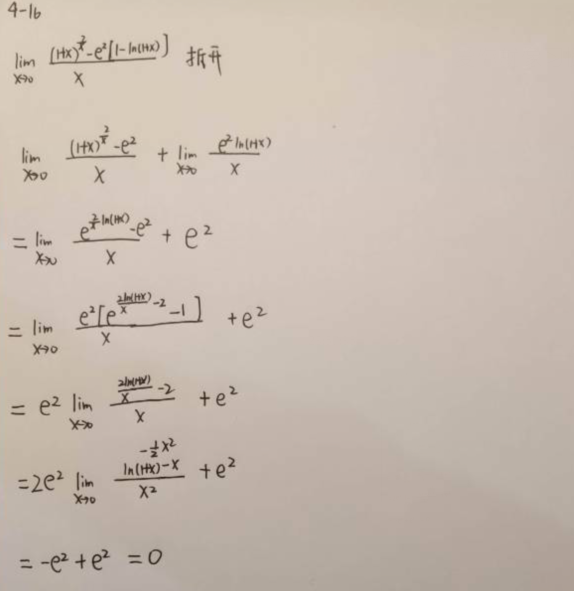 4-16
lim x→0 ((1+x)^(2/x) - e²[1-ln(1+x)]) / x 拆开
lim x→0 ((1+x)^(2/x) - e²) / x + lim x→0 (e² ln(1+x)) / x
= lim x→0 (e^((2/x) ln(1+x)) - e²) / x + e²
= lim x→0 (e²[e^((2ln(1+x))/x - 2) - 1]) / x + e²
= e² lim x→0 ((2ln(1+x))/x - 2) / x + e²
-½x²
= 2e² lim x→0 (ln(1+x) - x) / x² + e²
= -e² + e² = 0